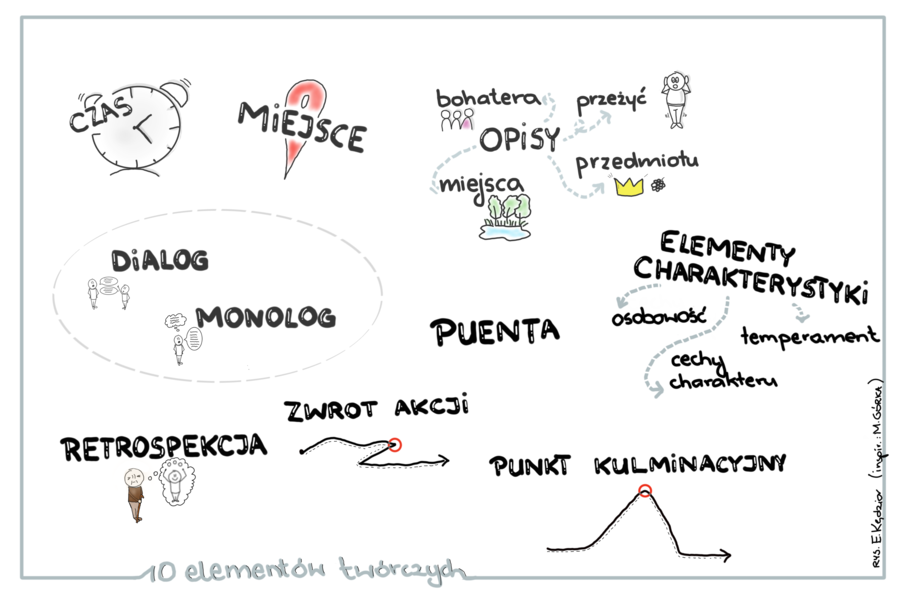 CZAS
MIEJSCE
bohatera
przeżyć
OPISY
przedmiotu
miejsca
DIALOG
MONOLOG
PUENTA
ELEMENTY
CHARAKTERYSTYKI
osobowość
temperament
cechy
charakteru
ZWROT AKCJI
RETROSPEKCJA
PUNKT KULMINACYJNY
10 elementów twórczych
RYS. E.Kędzior (inspir.: M.GÓRKA)